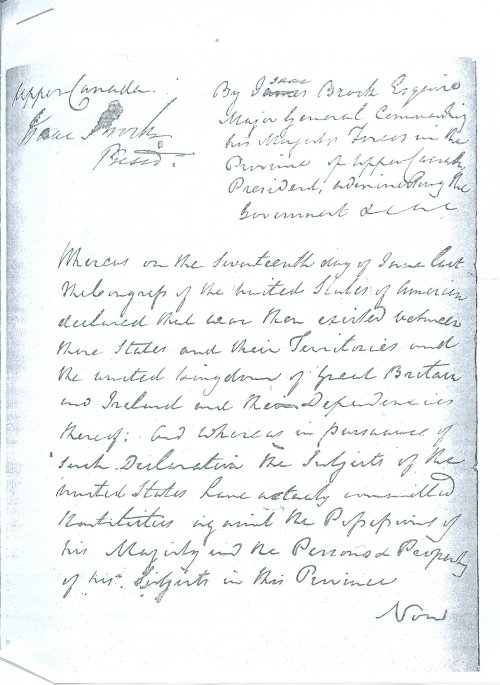 Upper Canada.
Isaac Brock
Presid.t
Isaac
By James Brock Esquire
Major General Commanding
his Majestys Forces in the
Province of Upper Canada
President, administering the
Government &c &c &c
Whereas on the Seventeenth day of June last
the Congress of the United States of American
declared that war then existed between
those States and their Territories and
the united kingdom of Great Britain
and Ireland and the Dependencies
thereof: and whereas in pursuance of
such Declaration the Subjects of the
United States have actualy committed
Hostilities against the Possessions of
his Majesty and the Persons & Property
of his Subjects in this Province
Now